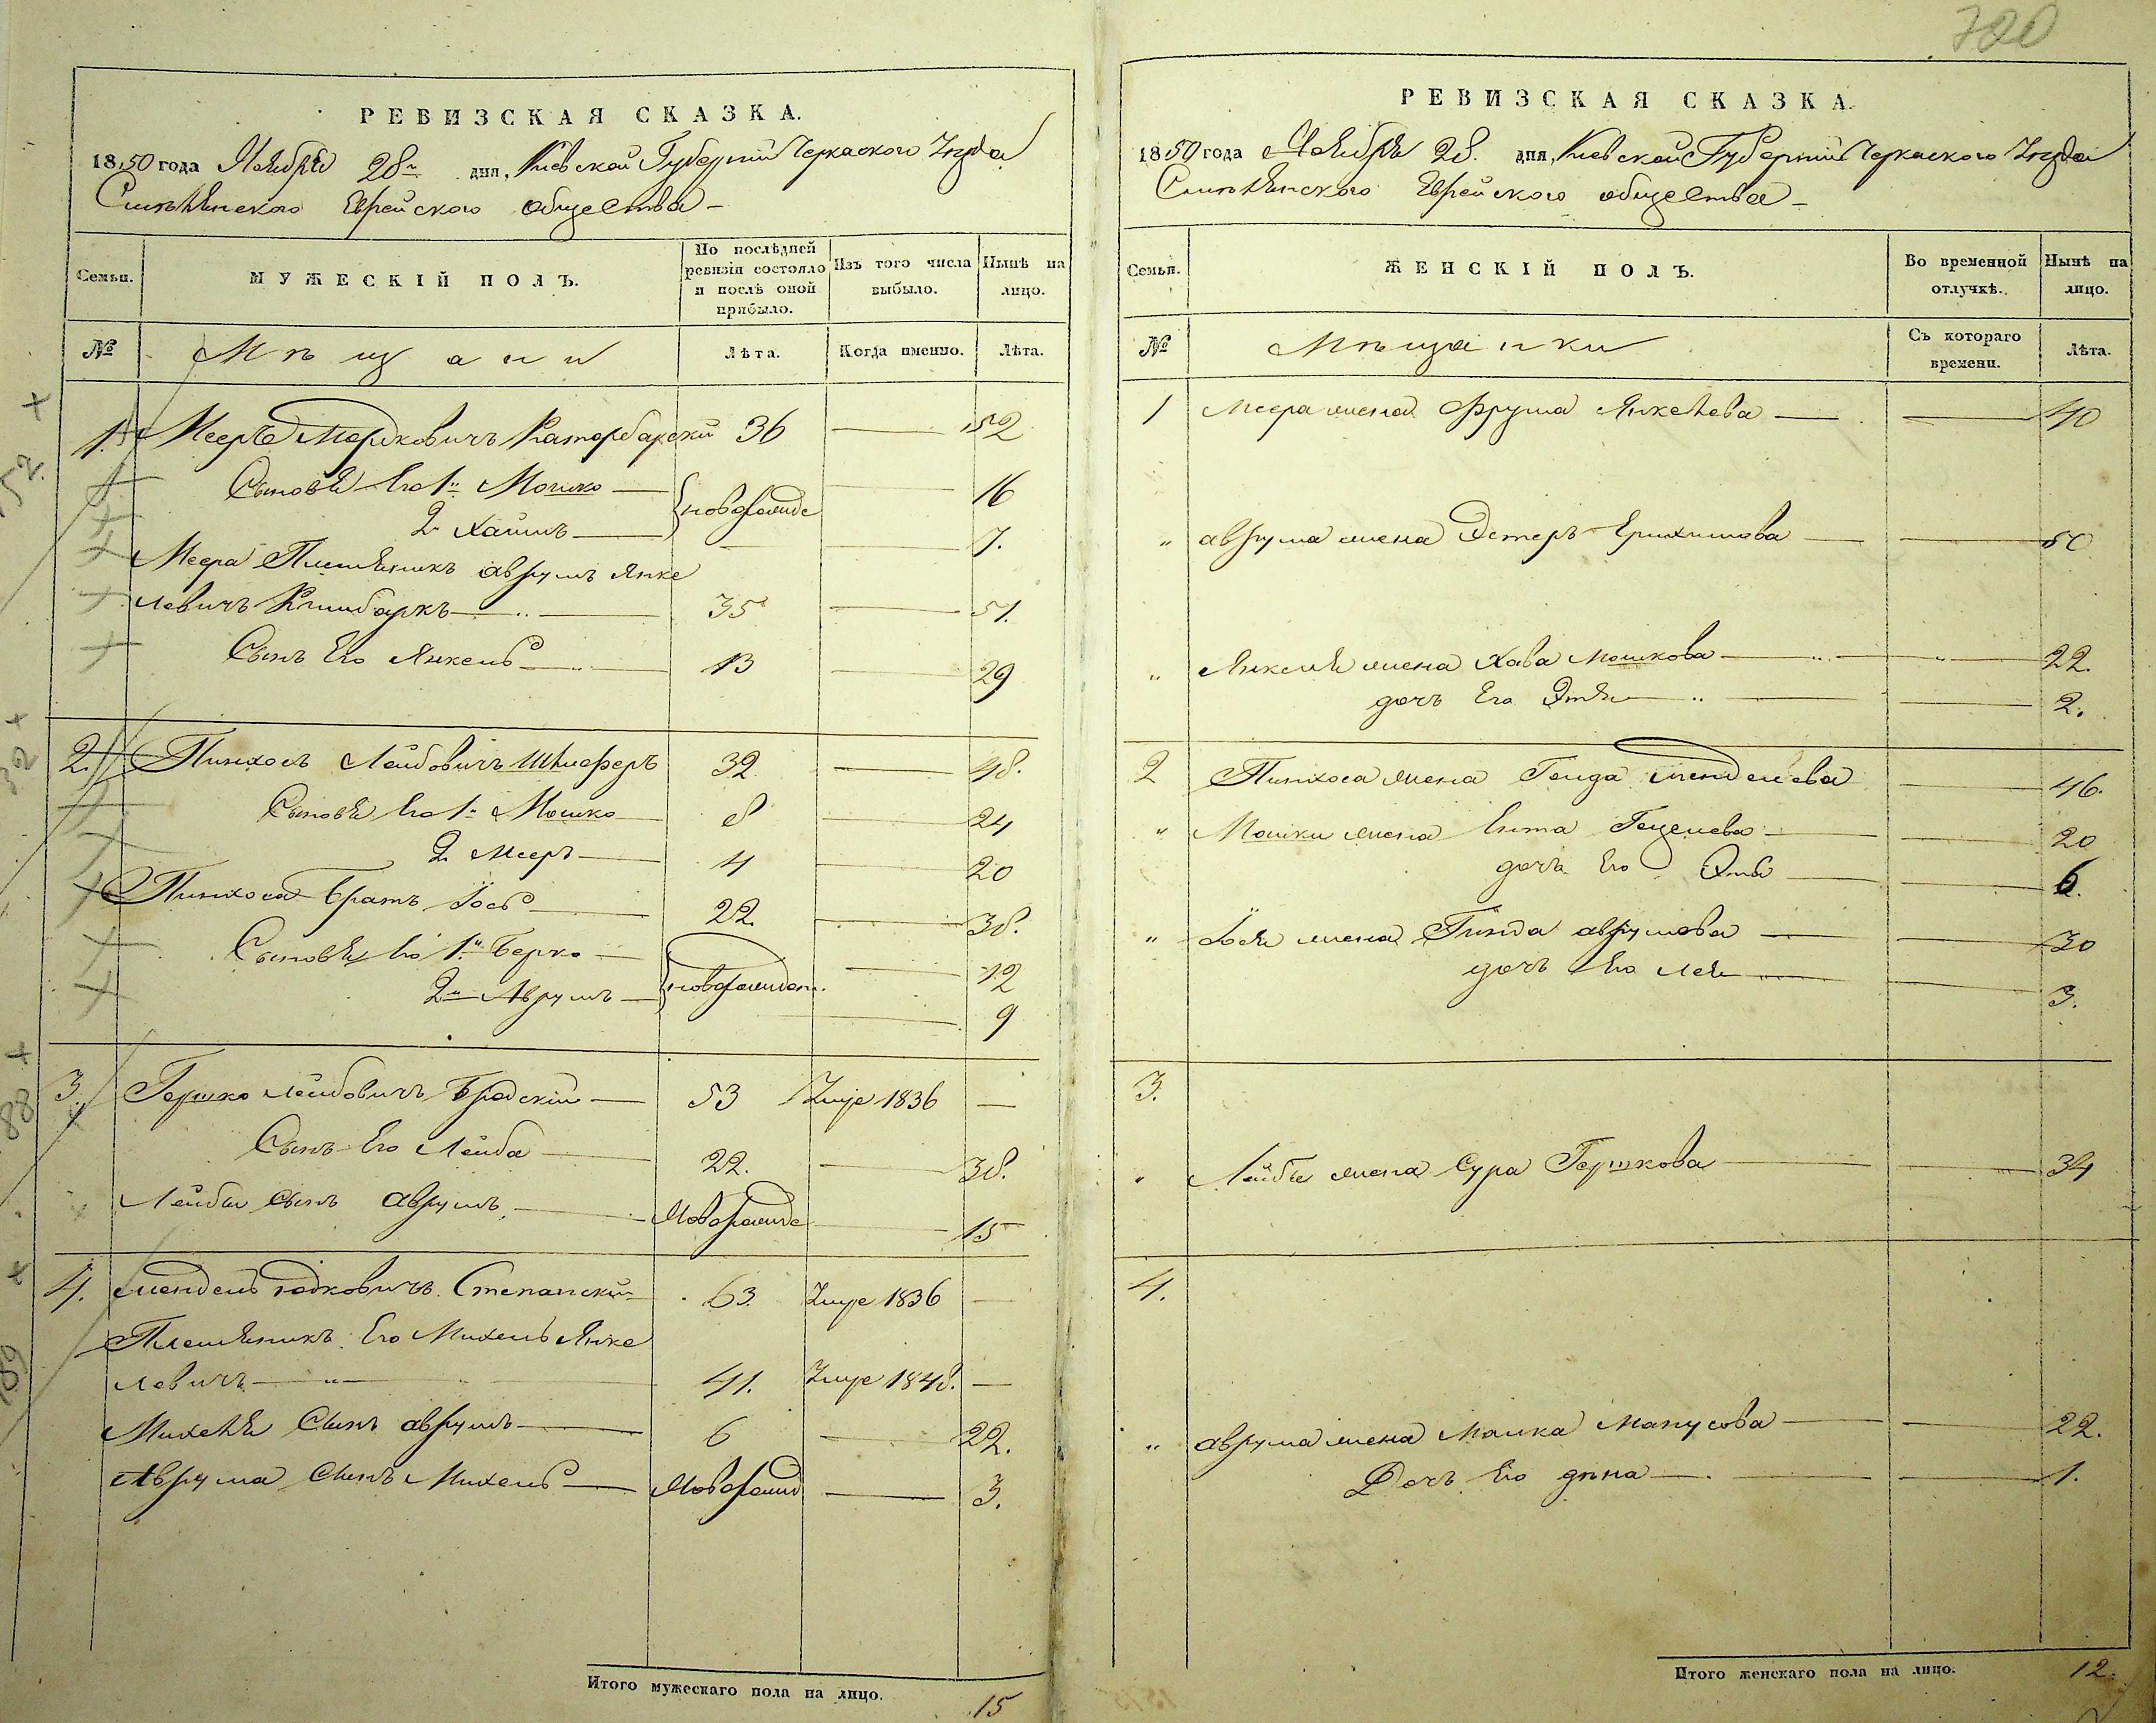 720
РЕВИЗСКАЯ СКАЗКА.
1850 года Ноября 28го дня, Киевской Губернии Черкаского Уезда
Смелянского Еврейского общества
Семьи.
МУЖЕСКІЙ ПОЛЪ.
По послѣдней ревизіи состояло и послѣ оной прибыло.
Изъ того числа выбыло.
Нынѣ на лицо.
№
Мѣщани
Лѣта.
Когда именно.
Лѣта.
1. Мееръ Мошковичъ 36 52
Сыновья Его 1й Мошко новорожде 16
2 Хаимъ 7.
Меера Племяникъ аврумъ Янке
левичъ 35 51.
Сынъ Его Янкель 13 29
2. Пинхосъ Лейбовичъ Шмеферъ 32 48.
Сыновья Его 1й Мошко 8 24
2 Мееръ 4 20
Пинхоса братъ Іось 22. 38.
Сыновья Его 1й Берко новорожден. 12
2й Аврумъ 9
3. Гершко Лейбовичъ Бродскій 53 Умре 1836 —
Сынъ Его Лейба 22. 38.
Лейбы сынъ аврумъ Новорожде 15
4. Мендель Юдковичъ Степанский 63. Умре 1836 —
Племяникъ Его Михель Янке
левичъ 41. Умре 1848. —
Михеля Сынъ аврумъ 6 22.
Аврума Сынъ Михель Новорожд 3.
Итого мужескаго пола на лицо. 15
РЕВИЗСКАЯ СКАЗКА.
1850 года Ноября 28. дня, Киевской Губернии Черкаского Уезда
Смелянского Еврейского общества
Семьи.
ЖЕНСКІЙ ПОЛЪ.
Во временной отлучкѣ.
Нынѣ на лицо.
№
Мѣщанки
Съ котораго времени.
Лѣта.
1 Меера жена Фрума Янкелева 40
" аврума жена Эстеръ 50
" Янкеля жена Хава Мошкова 22.
дочь Его Этя 2.
2 Пинхоса жена Генда Менделева 46.
" Мошки жена Ента Гецелева 20
дочь Его Этя 6.
" Іося жена Гинда аврумова 30
дочь Его Лея 3.
3.
" Лейбы жена Сура Гершкова 34
4.
" аврума жена Малка Манусова 22.
Дочь Его 1.
Итого женскаго пола на лицо. 12.